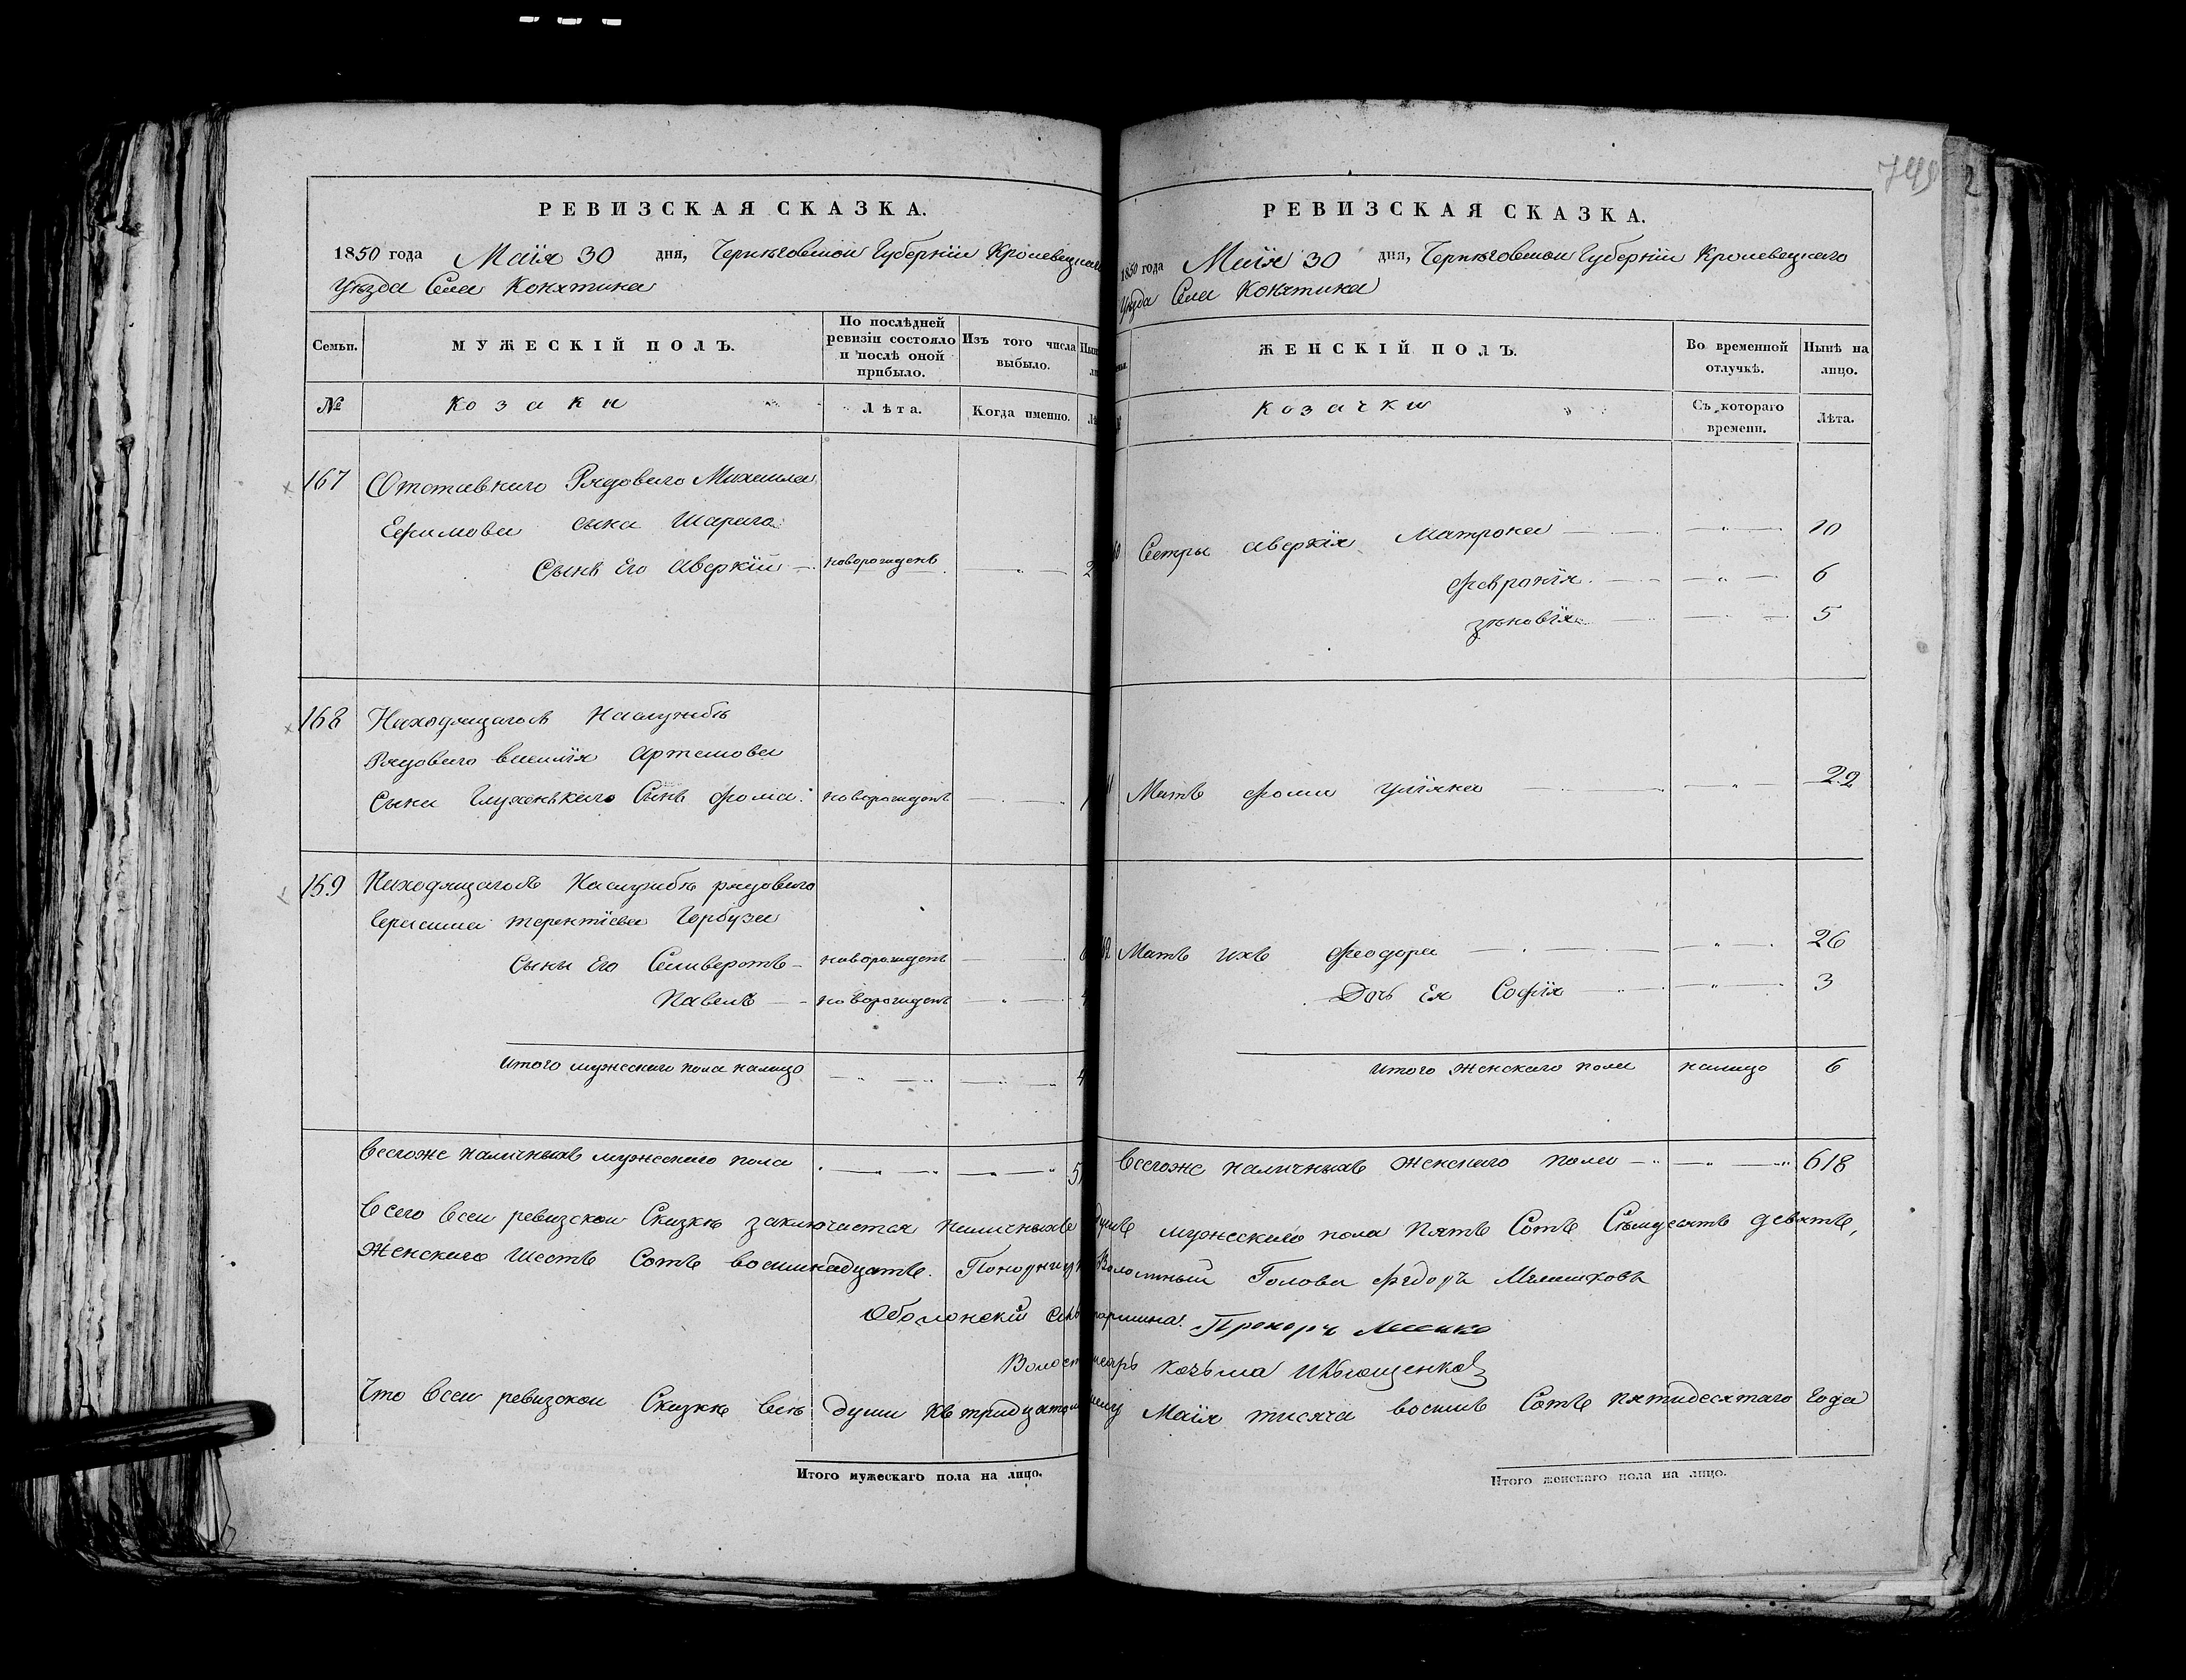 РЕВИЗСКАЯ СКАЗКА.
1850 года Маія 30 дня, Чернѣговской Губерніи Кролевецкаго
Уѣзда Села Конятина
Семьи.
МУЖЕСКІЙ ПОЛЪ.
По послѣдней ревизіи состояло и послѣ оной прибыло.
Изъ того числа выбыло.
№
Козаки
Лѣта.
Когда именно.
167 Отставнаго Рядоваго Михаила
Ефимова сына Шараго
Сынъ Его Аверкій новорожденъ
168 Находящагося Наслужбѣ
Рядоваго Василія Артемова
Сына Глухенькаго Сынъ Фома новорожденъ
169 Находящагося Наслужбѣ рядоваго
Герасима Терентіева Горбуза
Сыны Его Селиверстъ новорожденъ
Павелъ новорожденъ
Итого мужескаго пола налицо
Всегоже наличныхъ мужескаго пола
РЕВИЗСКАЯ СКАЗКА.
1850 года Маія 30 дня, Чернѣговской Губерніи Кролевецкаго
Уѣзда Села Конятина
ЖЕНСКІЙ ПОЛЪ.
Во временной отлучкѣ.
Нынѣ на лицо.
Козачки
Съ котораго времени.
Лѣта.
Сестры Аверкія Матрона 10
Февронія 6
Зѣновія 5
Мать Фомы Уліяна 22
Мать ихъ Феодора 26
Дочь Ея Софія 3
Итого Женскаго пола налицо 6
Всегоже наличныхъ Женскаго пола 618
Всего всей ревизской Сказкѣ заключается наличныхъ душъ мужескаго пола Пять Сотъ Сѣмдесятъ девять,
Женскаго Шесть Сотъ восимнадцать. Волостный Голова Федоръ
Оболонскій Прохоръ
Козьма
Что всей ревизской Сказкѣ всѣ души къ Маія тисяча восимъ Сотъ пятидесятаго Года
Итого мужескаго пола на лицо.
Итого женскаго пола на лицо.